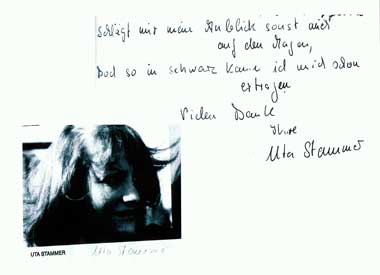 schlägt mir mein Anblick sonst nur
auf den Magen,
Doch so in schwarz kann ich mich schon
ertragen
Vielen Dank
Ihre
Uta Stammer
UTA STAMMER
Uta Stammer